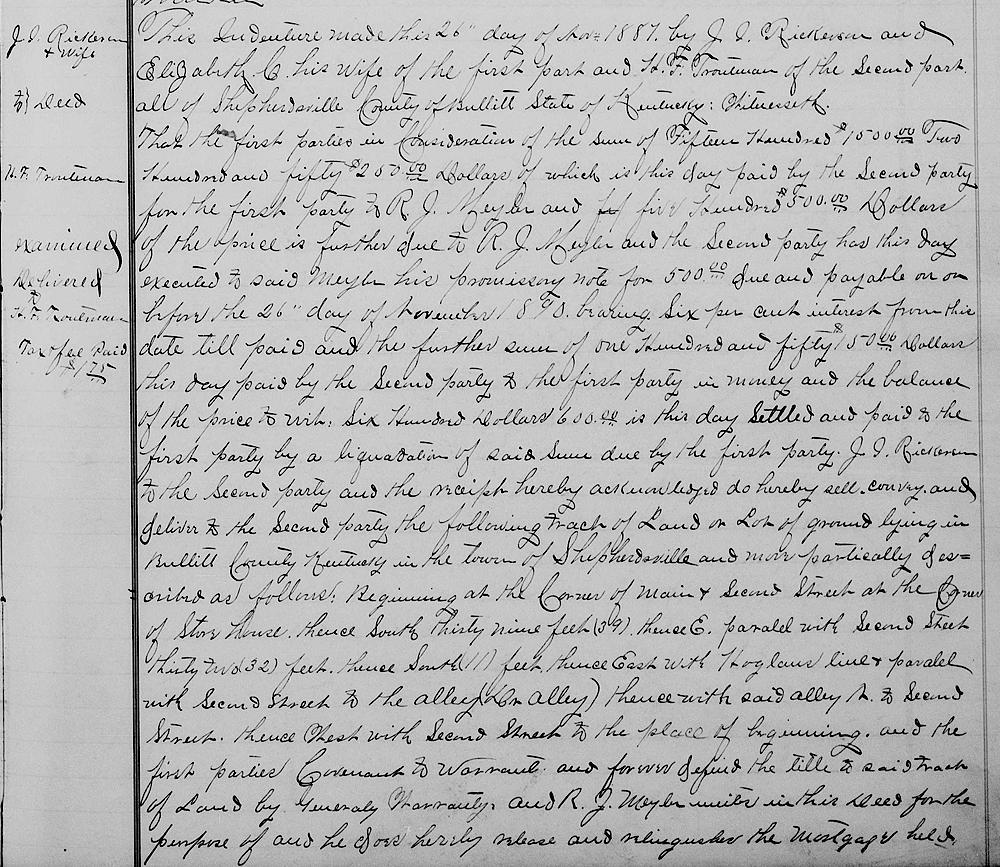 J. I. Rickerson
& Wife
to } Deed
H. F. Troutman
Examined
Delivered
to
H. F. Troutman
Tax & fee Paid
$1.75
This Indenture made this 26" day of Nov= 1887. by J. I. Rickerson and
Elizabeth C. his Wife of the first part and H. F. Troutman of the Second part.
all of Shepherdsville County of Bullitt State of Kentucky: Witnesseth.
That the first parties in Consideration of the sum of Fifteen Hundred $1500.00 Two
Hundred and fifty $250.00 Dollars of which is this day paid by the Second party
for the first party to R. J. Meyler and five Hundred $500.00 Dollars
of the price is further due to R. J. Meyler and the Second party has this day
executed to said Meyler his promissory note for 500.00 due and payable on or
before the 26" day of November 1890. bearing Six per cent interest from this
date till paid and the further sum of one Hundred and fifty $150.00 Dollars
this day paid by the Second party to the first party in money and the balance
of the price to wit: Six Hundred Dollars 600.00 is this day Settled and paid to the
first party by a liquadation of said sum due by the first party. J. I. Rickerson
to the Second party and the receipt hereby acknowledged do hereby sell. convey. and
deliver to the Second party the following track of Land or Lot of ground lying in
Bullitt County Kentucky in the town of Shepherdsville and more partically des=
cribed as follows: Beginning at the Corner of Main & Second Street at the Corner
of Store House. thence South Thirty nine feet (39) thence E. paralel with Second Street
thirty two (32) feet. thence South (11) feet. thence East with Hoglans line & paralel
with Second Street to the alley ( alley) thence with said alley N. to Second
Street. thence West with Second Street to the place of beginning. and the
first parties Covenant to Warrant and forever defend the title to said track
of Land by Generaly Warranty. and R. J. Meyler unites in this Deed for the
purpose of and he does hereby release and relinquishes the Mortgage held